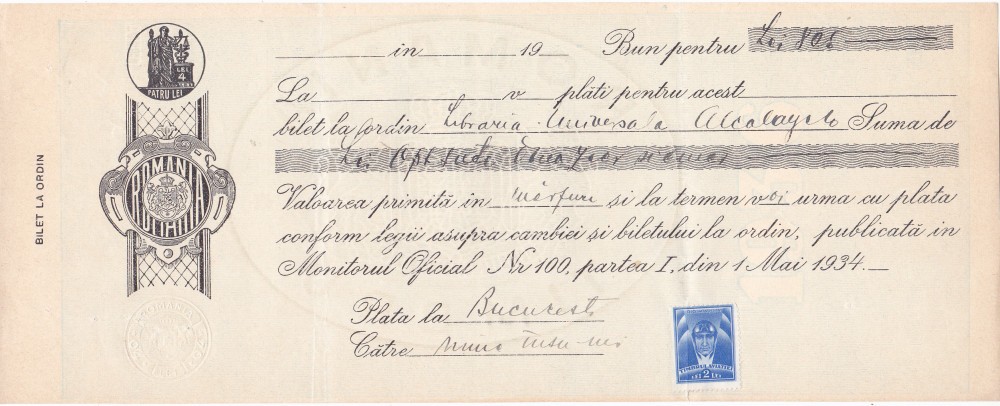 BILET LA ORDIN
LEI
4
PATRU LEI
ROMANIA
in 19 Bun pentru Lei
La v plăti pentru acest
bilet la ordin Libraria Universala Alcalay & Co Suma de
Lei Opt sute
Valoarea primită în mărfuri și la termen voi urma cu plata
conform legii asupra cambiei și biletului la ordin, publicată în
Monitorul Oficial Nr 100, partea I, din 1 Mai 1934.
Plata la Bucuresti
Către mine însu-mi
TIMBRUL AVIAȚIEI
LEI 2 LEI